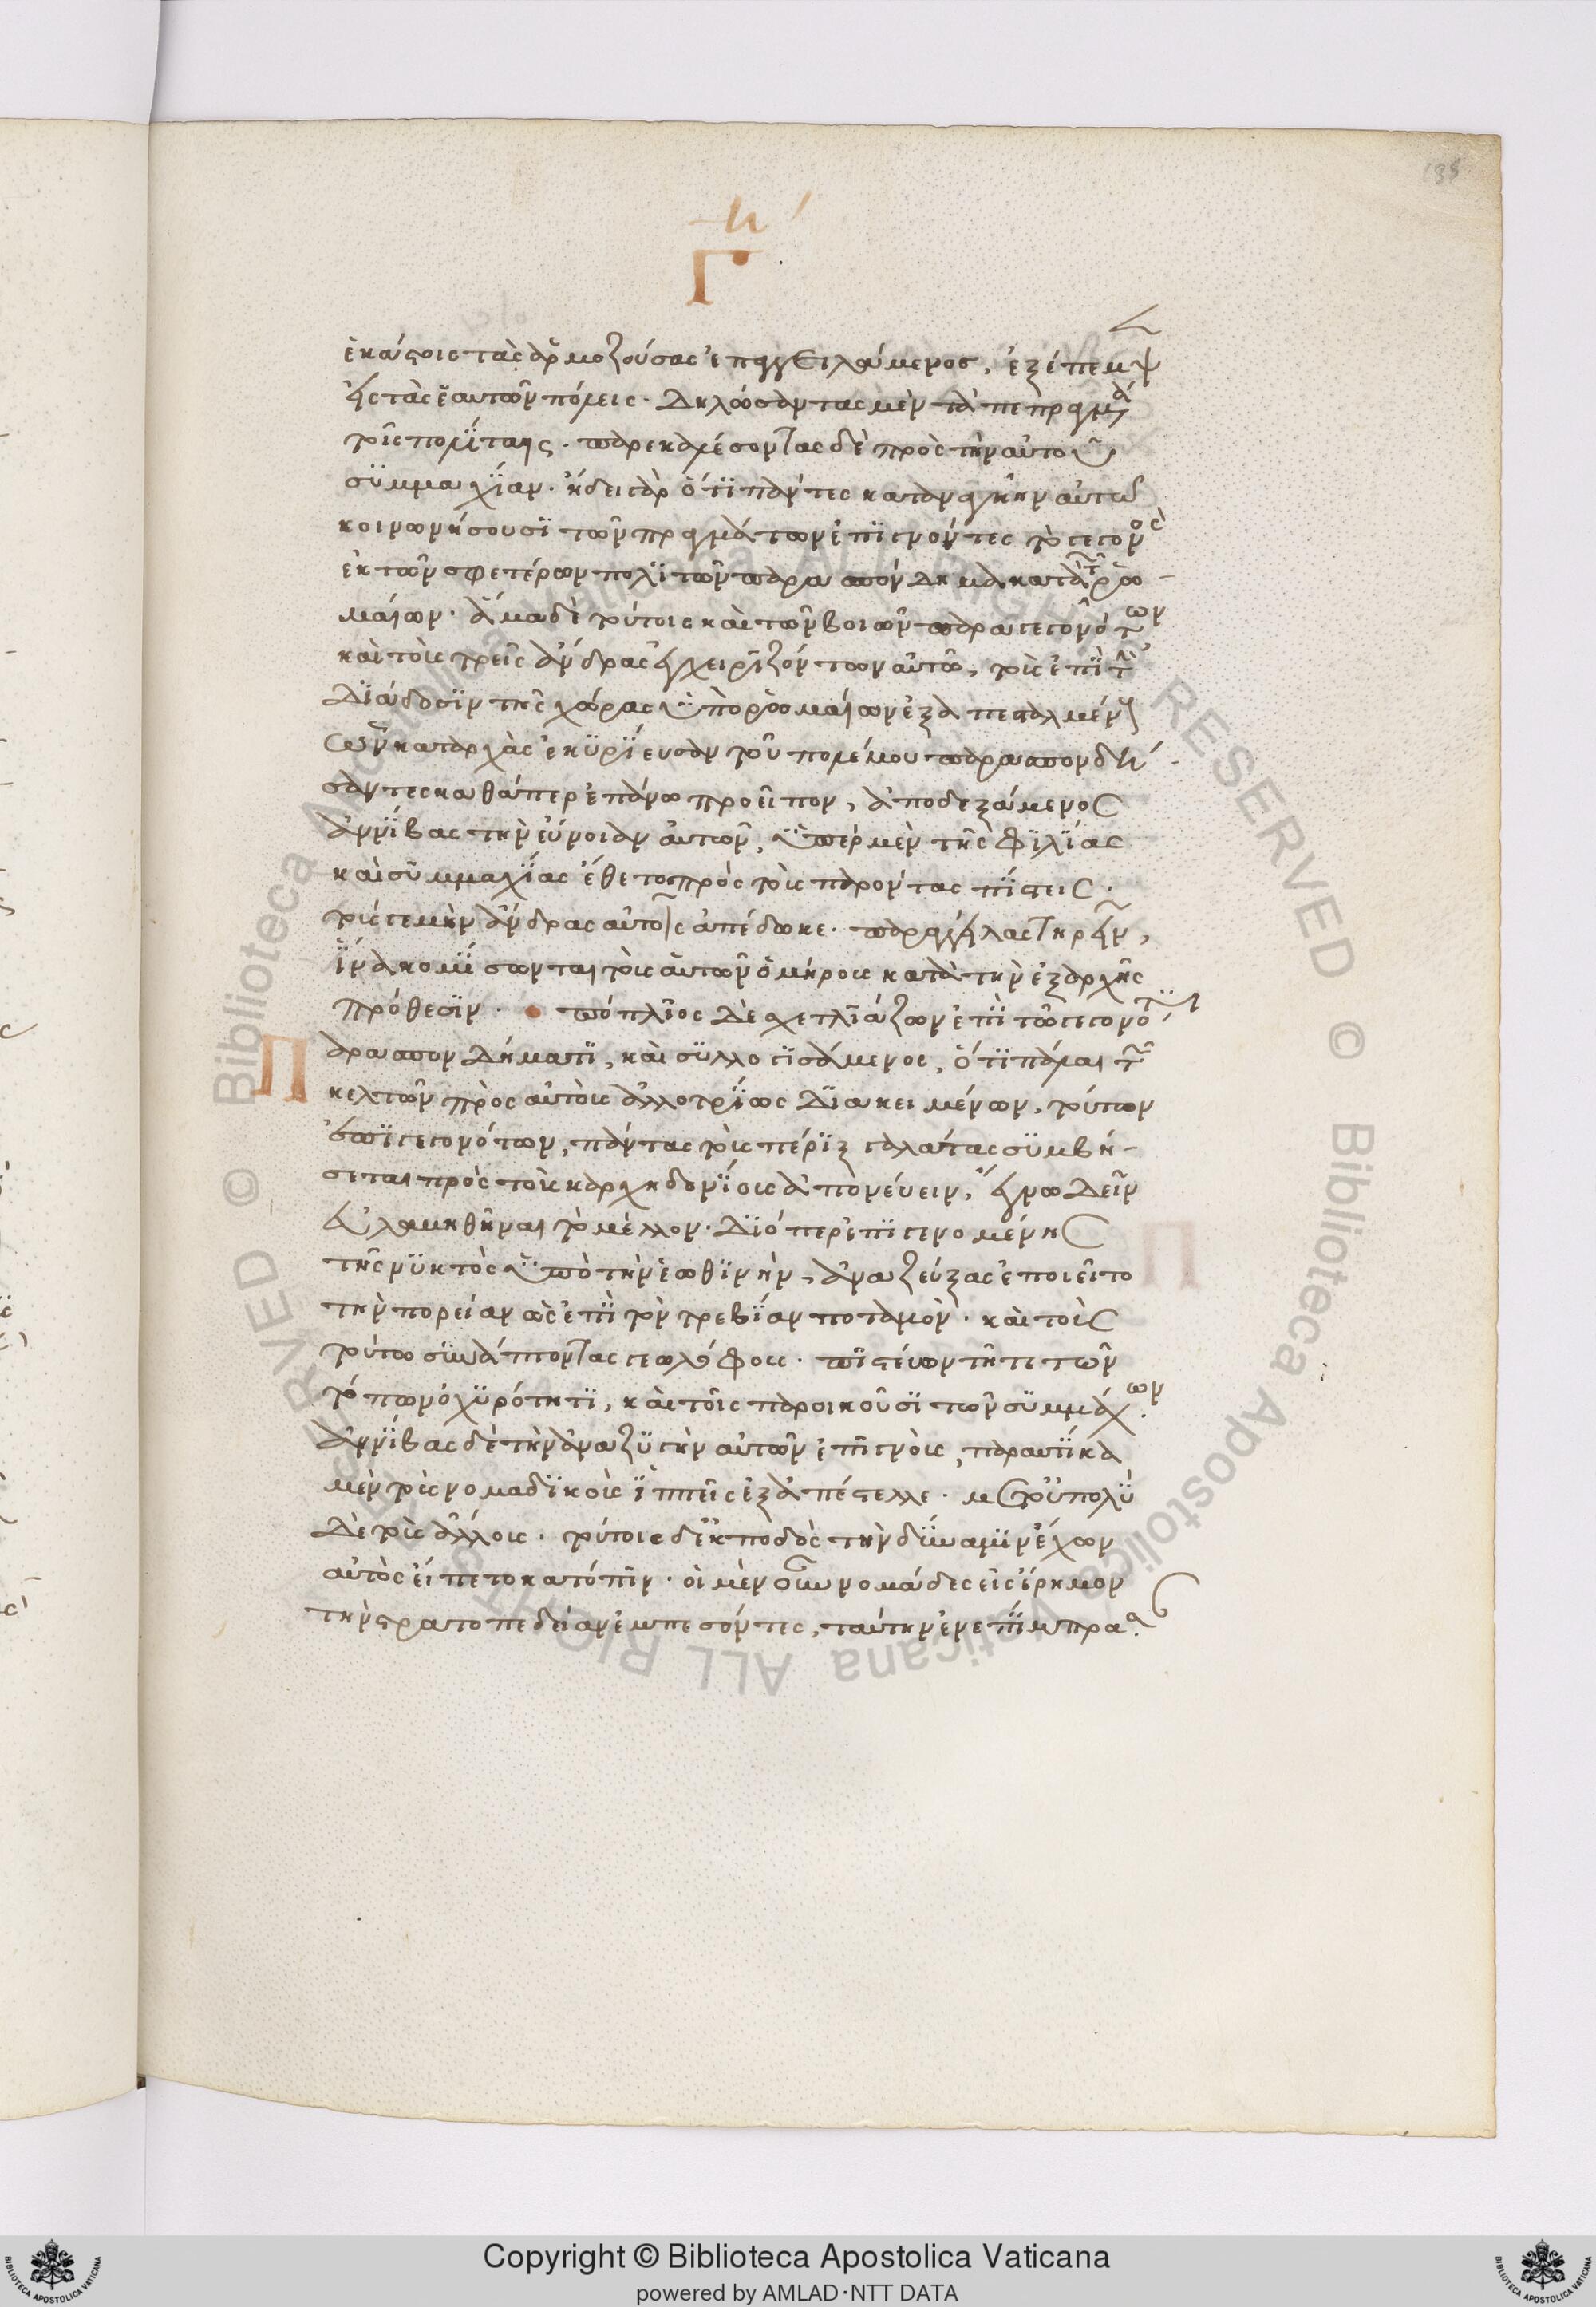 135
η´
Γ
ἑκάστοις τὰς ἁρμοζούσας ἐπαγγειλάμενος, ἐξέπεμψ
εἰς τὰς ἑαυτῶν πόλεις. δηλώσοντας μὲν τὰ πεπραγμέ
τοῖς πολίταις. παρακαλέσοντας δὲ πρὸς τὴν αὐτοῦ
συμμαχίαν. ᾔδει γὰρ ὅτι πάντες κατ' ἀνάγκην αὐτῶ
κοινωνήσουσι τῶν πραγμάτων ἐπιγνόντες τὸ γεγονὸς
ἐκ τῶν σφετέρων πολιτῶν παρασπόνδημα κατὰ τῶν ῥω
μαίων. ἅμα δὲ τούτοις καὶ τῶν βοιῶν παραγεγονότων
καὶ τοὺς τρεῖς ἄνδρας ἐγχειριζόντων αὐτῶ, τοὺς ἐπὶ τὴν
διάδοσιν τῆς χώρας ὑπὸ ῥωμαίων ἐξαπεσταλμένους
ὧν κατ' ἀρχὰς ἐκυρίευσαν τοῦ πολέμου παρασπονδή
σαντες καθάπερ ἐπάνω προεῖπον, ἀποδεξάμενος
ἀννίβας τὴν εὔνοιαν αὐτῶν, ὑπὲρ μὲν τῆς φιλίας
καὶ συμμαχίας ἔθετο πρὸς τοὺς παρόντας πίστεις.
τούς γε μὴν ἄνδρας αὐτοῖς ἀπέδωκε. παραγγείλας τηρεῖν,
ἵνα κομίσωνται τοὺς αὐτῶν ὁμήρους κατὰ τὴν ἐξαρχῆς
πρόθεσιν. πόπλιος δὲ σχετλιάζων ἐπὶ τῶ γεγονότι
Π
παρασπονδήματι, καὶ συλλογισάμενος, ὅτι πάλαι τῶν
κελτῶν πρὸς αὐτοὺς ἀλλοτρίως διακειμένων, τούτων
ἐπιγεγονότων, πάντας τοὺς πέριξ γαλάτας συμβή
σεται πρὸς τοὺς καρχηδονίους ἀπονεύειν, ἔγνω δεῖν
εὐλαβηθῆναι τὸ μέλλον. διόπερ ἐπιγενομένης
τῆς νυκτὸς ὑπὸ τὴν ἑωθινὴν, ἀναζεύξας ἐποιεῖτο
τὴν πορείαν ὡς ἐπὶ τὸν τρεβίαν ποταμὸν. καὶ τοὺς
τούτω συνάπτοντας γεωλόφους. πιστεύων τῆ τε τῶν
τόπων ὀχυρότητι, καὶ τοῖς παροικοῦσι τῶν συμμάχων.
ἀννίβας δὲ τὴν ἀναζυγὴν αὐτῶν ἐπιγνοὺς, παραυτίκα
μὲν τοὺς νομαδικοὺς ἱππεῖς ἐξαπέστελλε. μετ' οὐ πολὺ
δὲ τοὺς ἄλλους. τούτοις δ' ἐκ ποδὸς τὴν δύναμιν ἔχων
αὐτὸς εἵπετο κατόπιν. οἱ μὲν οὖν νομάδες εἰς ἔρημον
τὴν στρατοπεδείαν ἐμπεσόντες, ταύτην ἐνεπίμπρασαν
Copyright © Biblioteca Apostolica Vaticana
powered by AMLAD·NTT DATA